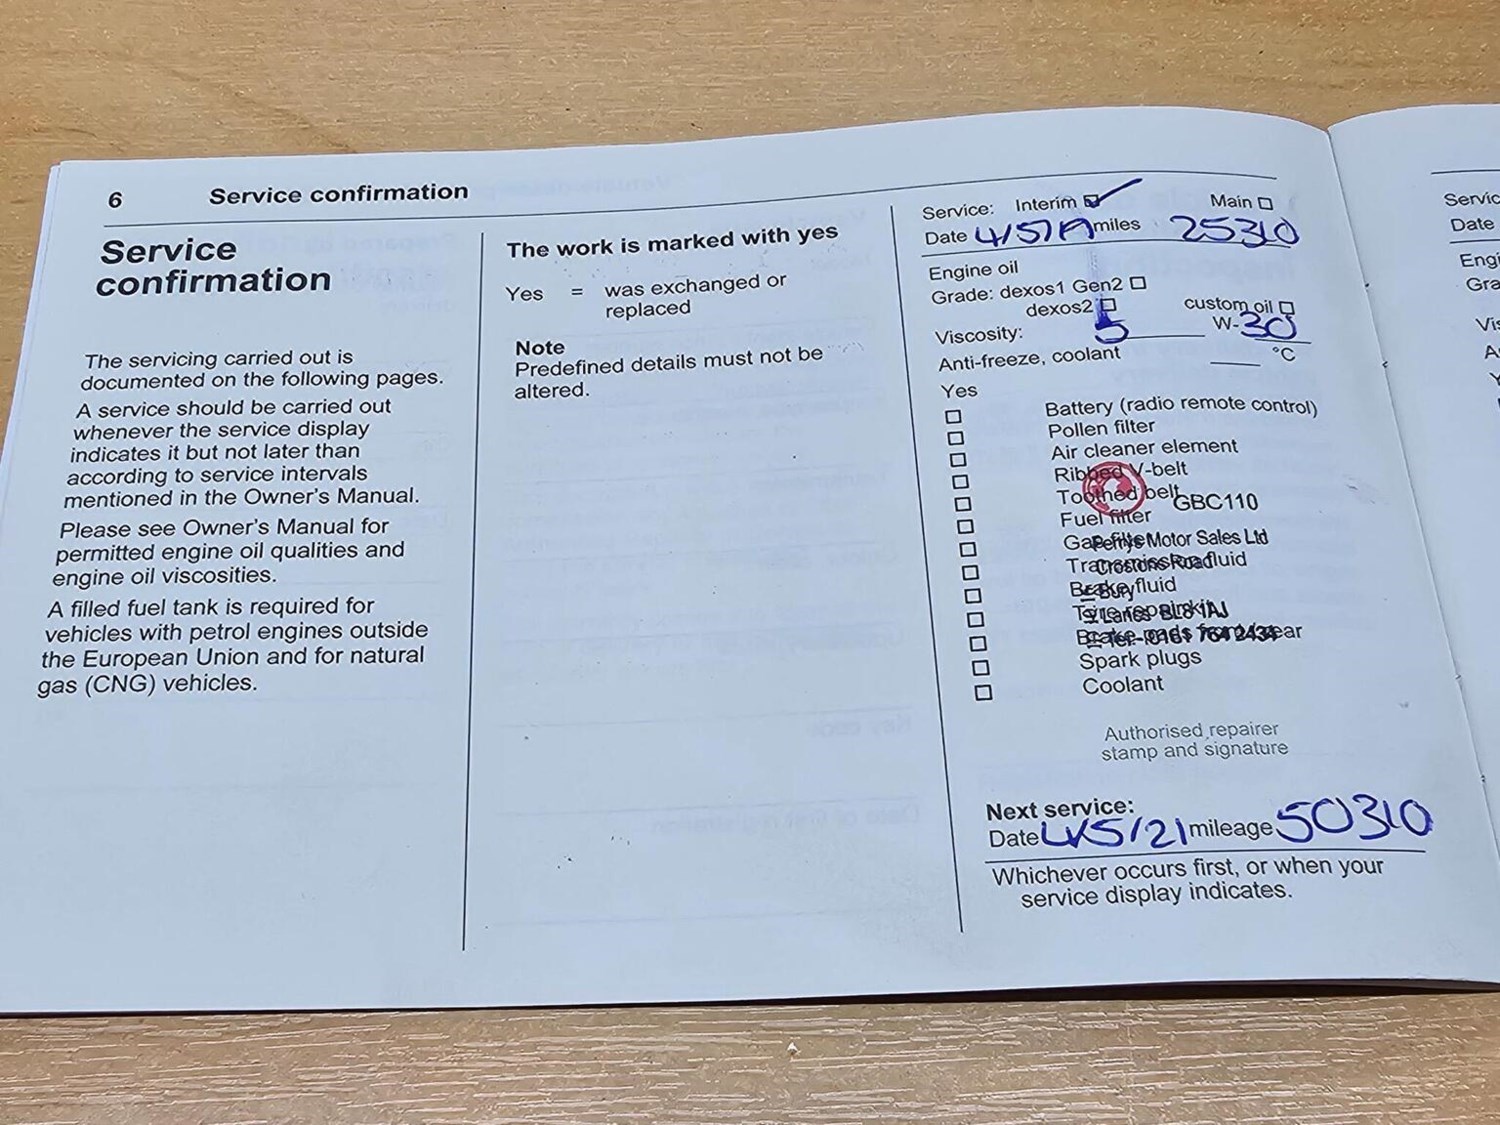 6 Service confirmation
Service
confirmation
The servicing carried out is
documented on the following pages.
A service should be carried out
whenever the service display
indicates it but not later than
according to service intervals
mentioned in the Owner's Manual.
Please see Owner's Manual for
permitted engine oil qualities and
engine oil viscosities.
A filled fuel tank is required for
vehicles with petrol engines outside
the European Union and for natural
gas (CNG) vehicles.
The work is marked with yes
Yes = was exchanged or
replaced
Note
Predefined details must not be
altered.
Service: Interim Main
Date miles 25310
Engine oil
Grade: dexos1 Gen2
dexos2 custom oil
Viscosity: 5 W-30
Anti-freeze, coolant °C
Yes
Battery (radio remote control)
Pollen filter
Air cleaner element
Ribbed V-belt
Toothed belt
GBC110
Fuel filter
Gas filter
Perrys Motor Sales Ltd
Transmission fluid
Crostons Road
Brake fluid
Bury
Tyre repair kit
Lancs BL8 1AJ
Brake pads front/rear
Tel - 0161 764 2434
Spark plugs
Coolant
Authorised repairer
stamp and signature
Next service:
Date 4/5/21 mileage 50310
Whichever occurs first, or when your
service display indicates.
Servic
Date
Engi
Gra